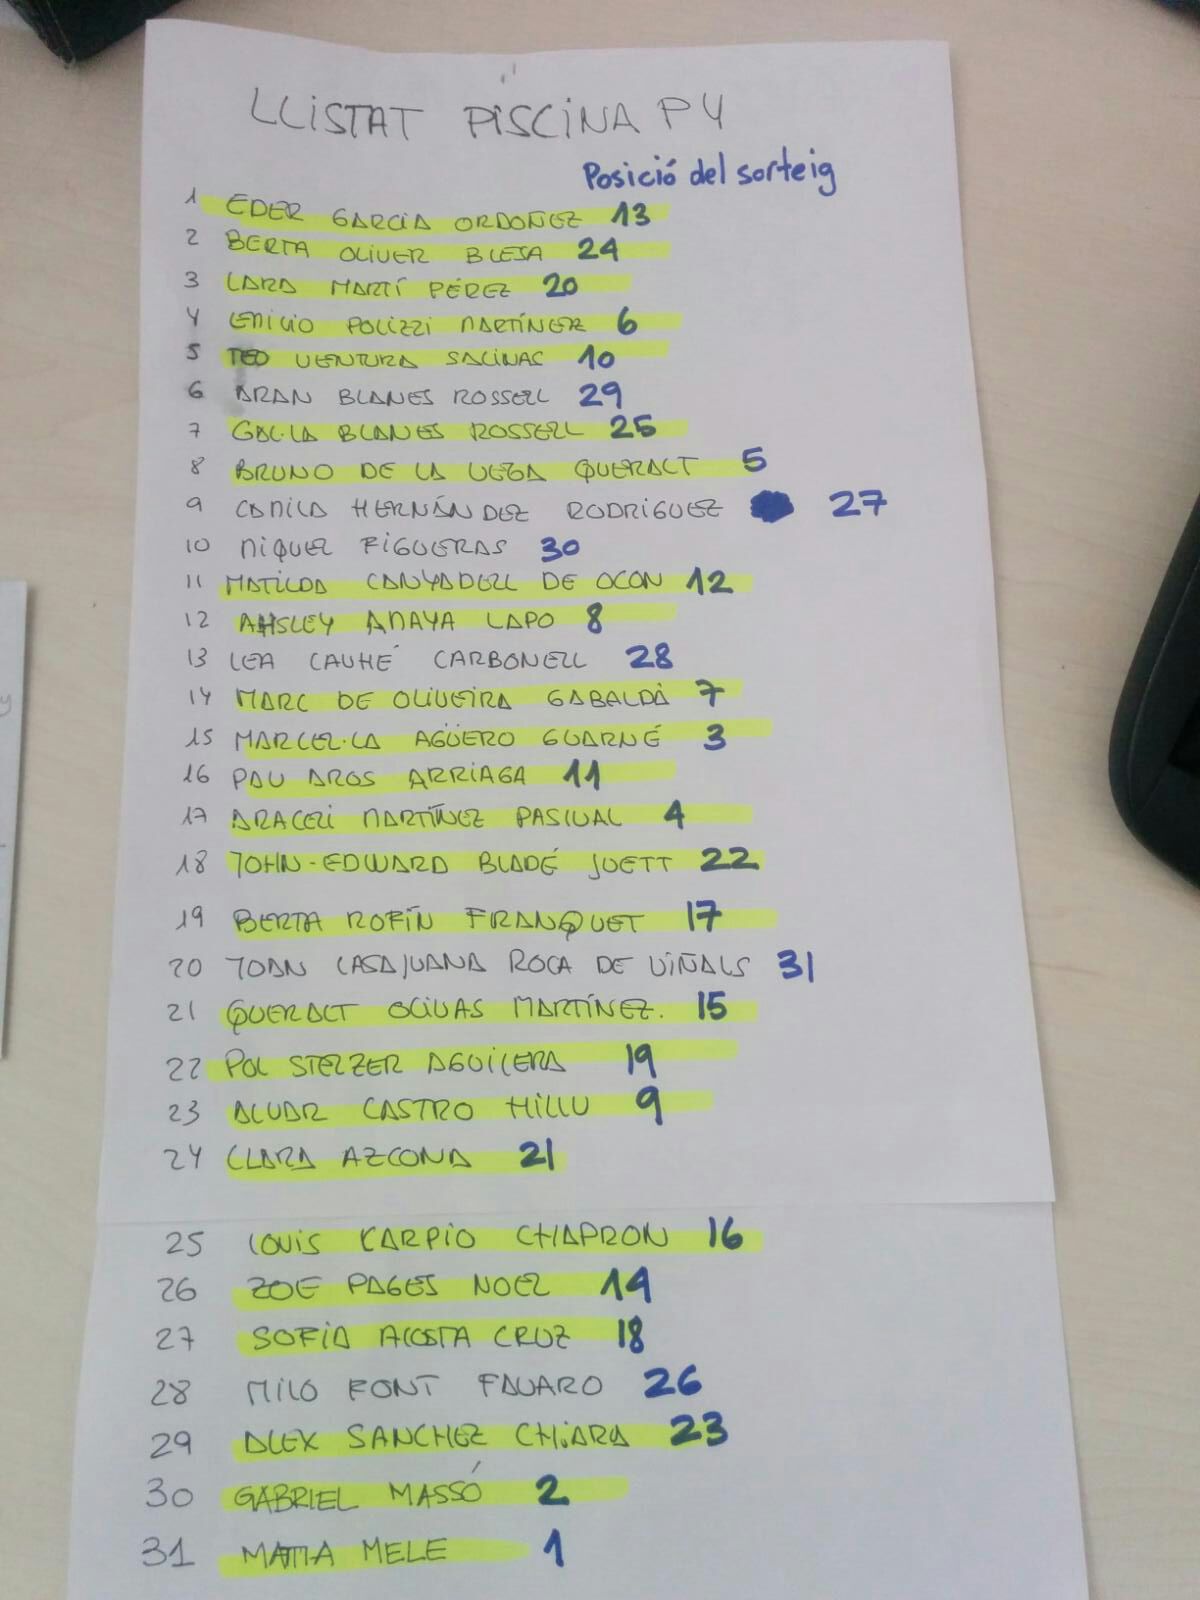 LLISTAT PISCINA P4
Posició del sorteig
1 EDER GARCIA ORDOÑEZ 13
2 BERTA OLIVER BLESA 24
3 LARA MARTÍ PÉREZ 20
4 EMILIO POLIZZI MARTÍNEZ 6
5 TEO VENTURA SALINAS 10
6 ARAN BLANES ROSSELL 29
7 GAL·LA BLANES ROSSELL 25
8 BRUNO DE LA VEGA QUERALT 5
9 CAMILA HERNÁNDEZ RODRIGUEZ 27
10 MIQUEL FIGUERAS 30
11 MATILDA CANYADELL DE OCON 12
12 AHSLEY AMAYA LAPO 8
13 LEA CAUHÉ CARBONELL 28
14 MARC DE OLIVEIRA GABALDÀ 7
15 MARCEL·LA AGÜERO GUARNÉ 3
16 PAU AROS ARRIAGA 11
17 ARACELI MARTÍNEZ PASCUAL 4
18 JOHN-EDWARD BLADÉ JUETT 22
19 BERTA ROFÍN FRANQUET 17
20 JOAN CASAJUANA ROCA DE VIÑALS 31
21 QUERALT OLIVAS MARTÍNEZ. 15
22 POL STELZER AGUILERA 19
23 ALVAR CASTRO 9
24 CLARA AZCONA 21
25 LOUIS CARPIO CHAPRON 16
26 ZOE PAGES NOEL 14
27 SOFIA ACOSTA CRUZ 18
28 MILO FONT FAVARO 26
29 ALEX SANCHEZ CHIARA 23
30 GABRIEL MASSÓ 2
31 MATTIA MELE 1